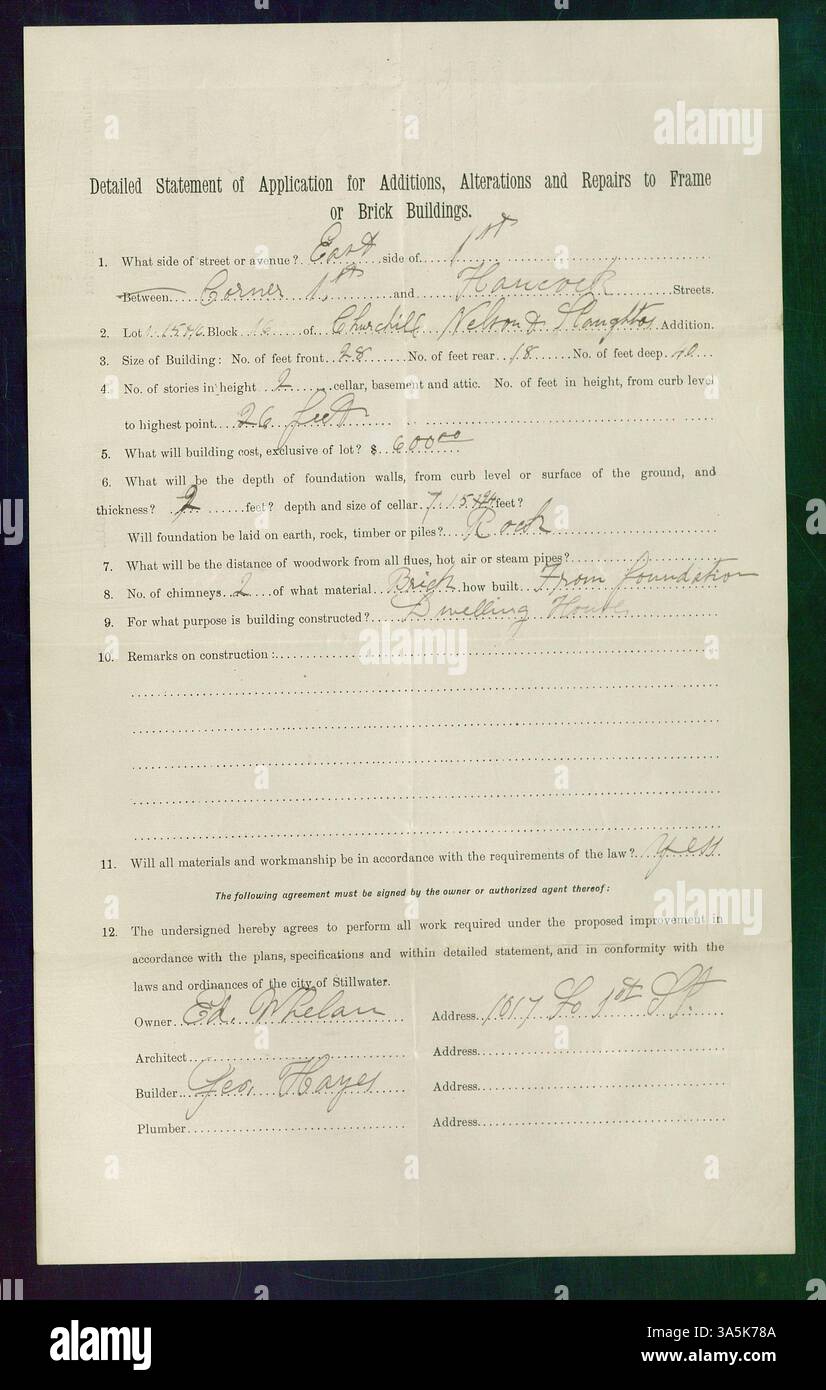 Detailed Statement of Application for Additions, Alterations and Repairs to Frame
or Brick Buildings.
1. What side of street or avenue? East side of 1st
Between Corner 1st and Hancock Streets.
2. Lot Block 16 of Churchill Nelson & Slaughters Addition.
3. Size of Building: No. of feet front 28 No. of feet rear 18 No. of feet deep 40
4. No. of stories in height 2 cellar, basement and attic. No. of feet in height, from curb level
to highest point 26 feet
5. What will building cost, exclusive of lot? $ 600 00
6. What will be the depth of foundation walls, from curb level or surface of the ground, and
thickness? 2 feet? depth and size of cellar 7 15 x 24 feet?
Will foundation be laid on earth, rock, timber or piles? Rock
7. What will be the distance of woodwork from all flues, hot air or steam pipes?
8. No. of chimneys 2 of what material Brick how built From foundation
9. For what purpose is building constructed? Dwelling House
10. Remarks on construction:
11. Will all materials and workmanship be in accordance with the requirements of the law? yess
The following agreement must be signed by the owner or authorized agent thereof:
12. The undersigned hereby agrees to perform all work required under the proposed improvement in
accordance with the plans, specifications and within detailed statement, and in conformity with the
laws and ordinances of the city of Stillwater.
Owner Ed. Whelan Address 1017 So 1st St.
Architect Address
Builder Geo. Hayes Address
Plumber Address
alamy
Image ID: 3A5K78A
www.alamy.com